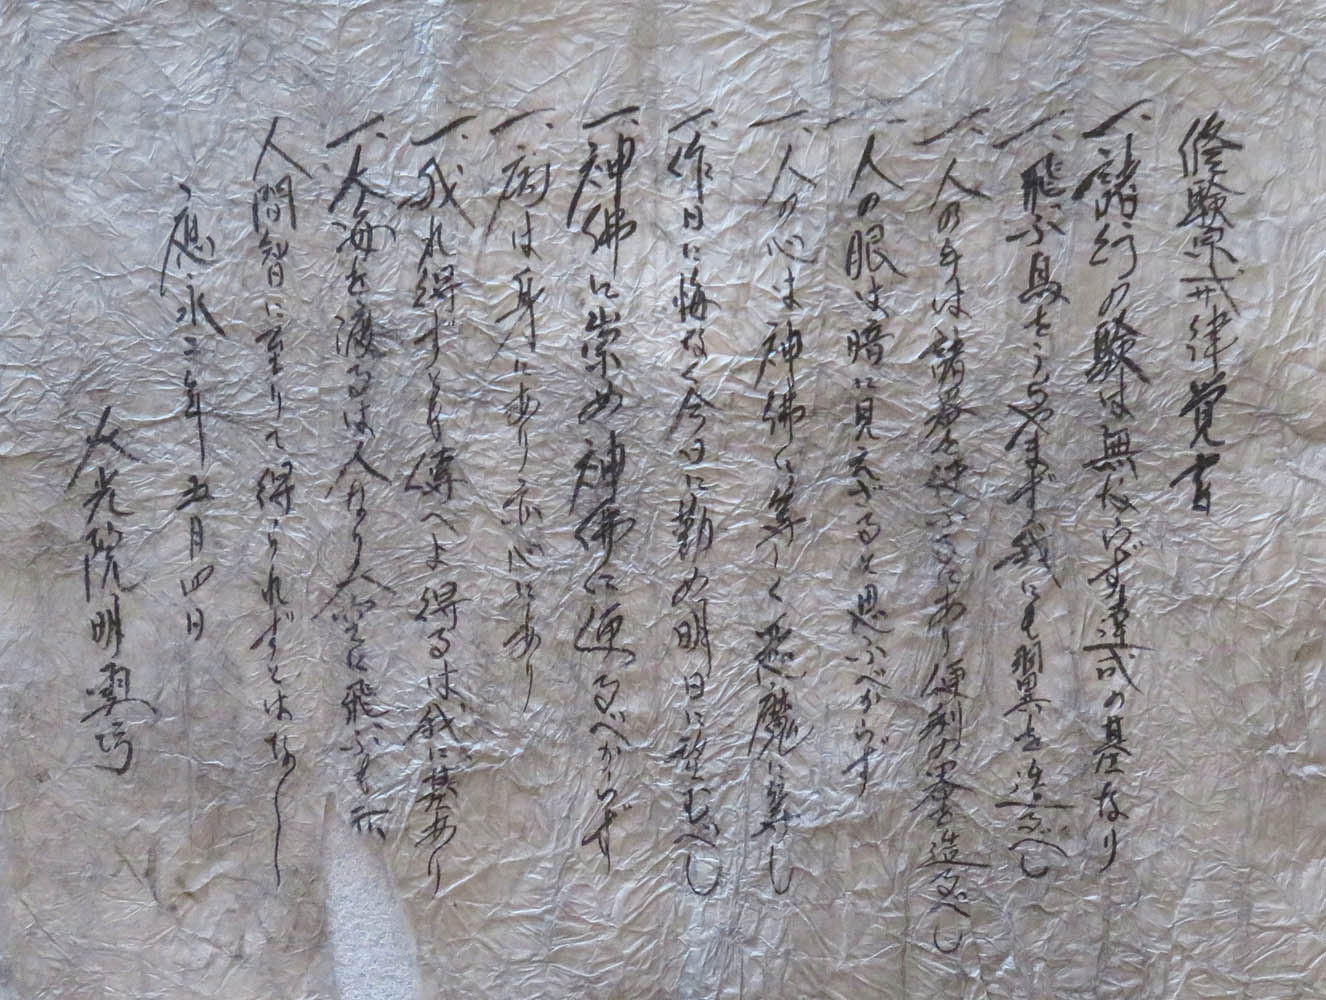 修験宗戒律覚書
一、諸行の験は無念ならず達成の基なり
一、飛ぶ鳥をうらやまず我にも翼を造るべし
一、人の手は諸悪を造ることにあり便利の楽を造るべし
一、人の眼は暗に見えざると思ふべからず
一、人の心は神佛に等しく悪魔に等し
一、昨日に悔なく今日に勤め明日に望むべし
一、神佛に崇め神佛に便るべからず
一、病は身にあり亦心にあり
一、我れ得ずとも傳へよ得るは我に基あり
一、大海を渡るは人なり人空に飛ぶも亦
人間智に至りて得られずとはなし
應永二年五月四日
大光院明